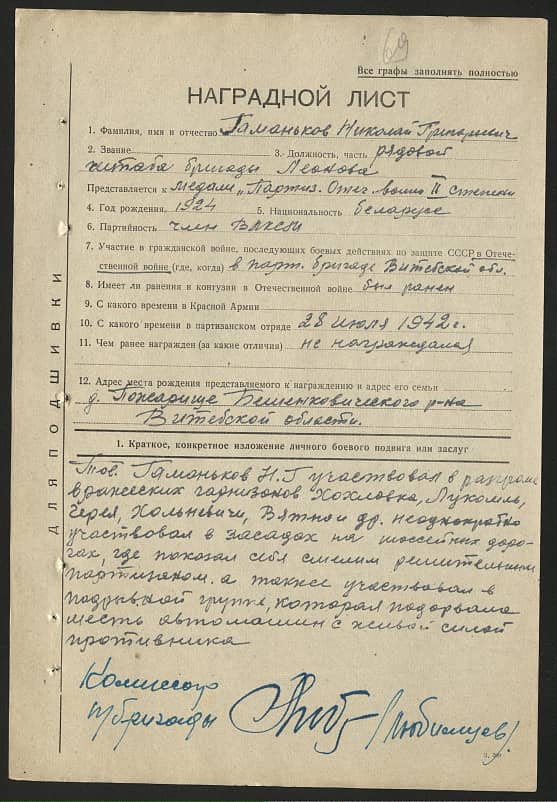 69
Все графы заполнять полностью
НАГРАДНОЙ ЛИСТ
1. Фамилия, имя и отчество Гаманьков Николай Григорьевич
2. Звание 3. Должность, часть рядовой
штаба бригады Леонова
Представляется к медали „Партиз. Отеч. войны II степени
4. Год рождения 1924 5. Национальность беларус
6. Партийность член ВЛКСМ
7. Участие в гражданской войне, последующих боевых действиях по защите СССР в Отече-
ственной войне (где, когда) в парт. бригаде Витебской обл.
8. Имеет ли ранения и контузии в Отечественной войне был ранен
9. С какого времени в Красной Армии
10. С какого времени в партизанском отряде 28 июля 1942 г.
11. Чем ранее награжден (за какие отличия) не награждался
12. Адрес места рождения представляемого к награждению и адрес его семьи
д. Пожарище Бешенковического р-на
Витебской области.
1. Краткое, конкретное изложение личного боевого подвига или заслуг
Тов. Гаманьков Н.Г участвовал в разгроме
вражеских гарнизонов Хохловка, Лукомль,
Черея, Хольневичи, Вятны и др. неоднократно
участвовал в засадах на шоссейных доро-
гах, где показал себя смелым решительным
партизаном. а также участвовал в
подрывной группе, которая подорвала
шесть автомашин с живой силой
противника
Комиссар
п/бригады (Любимцев).
ДЛЯ ПОДШИВКИ